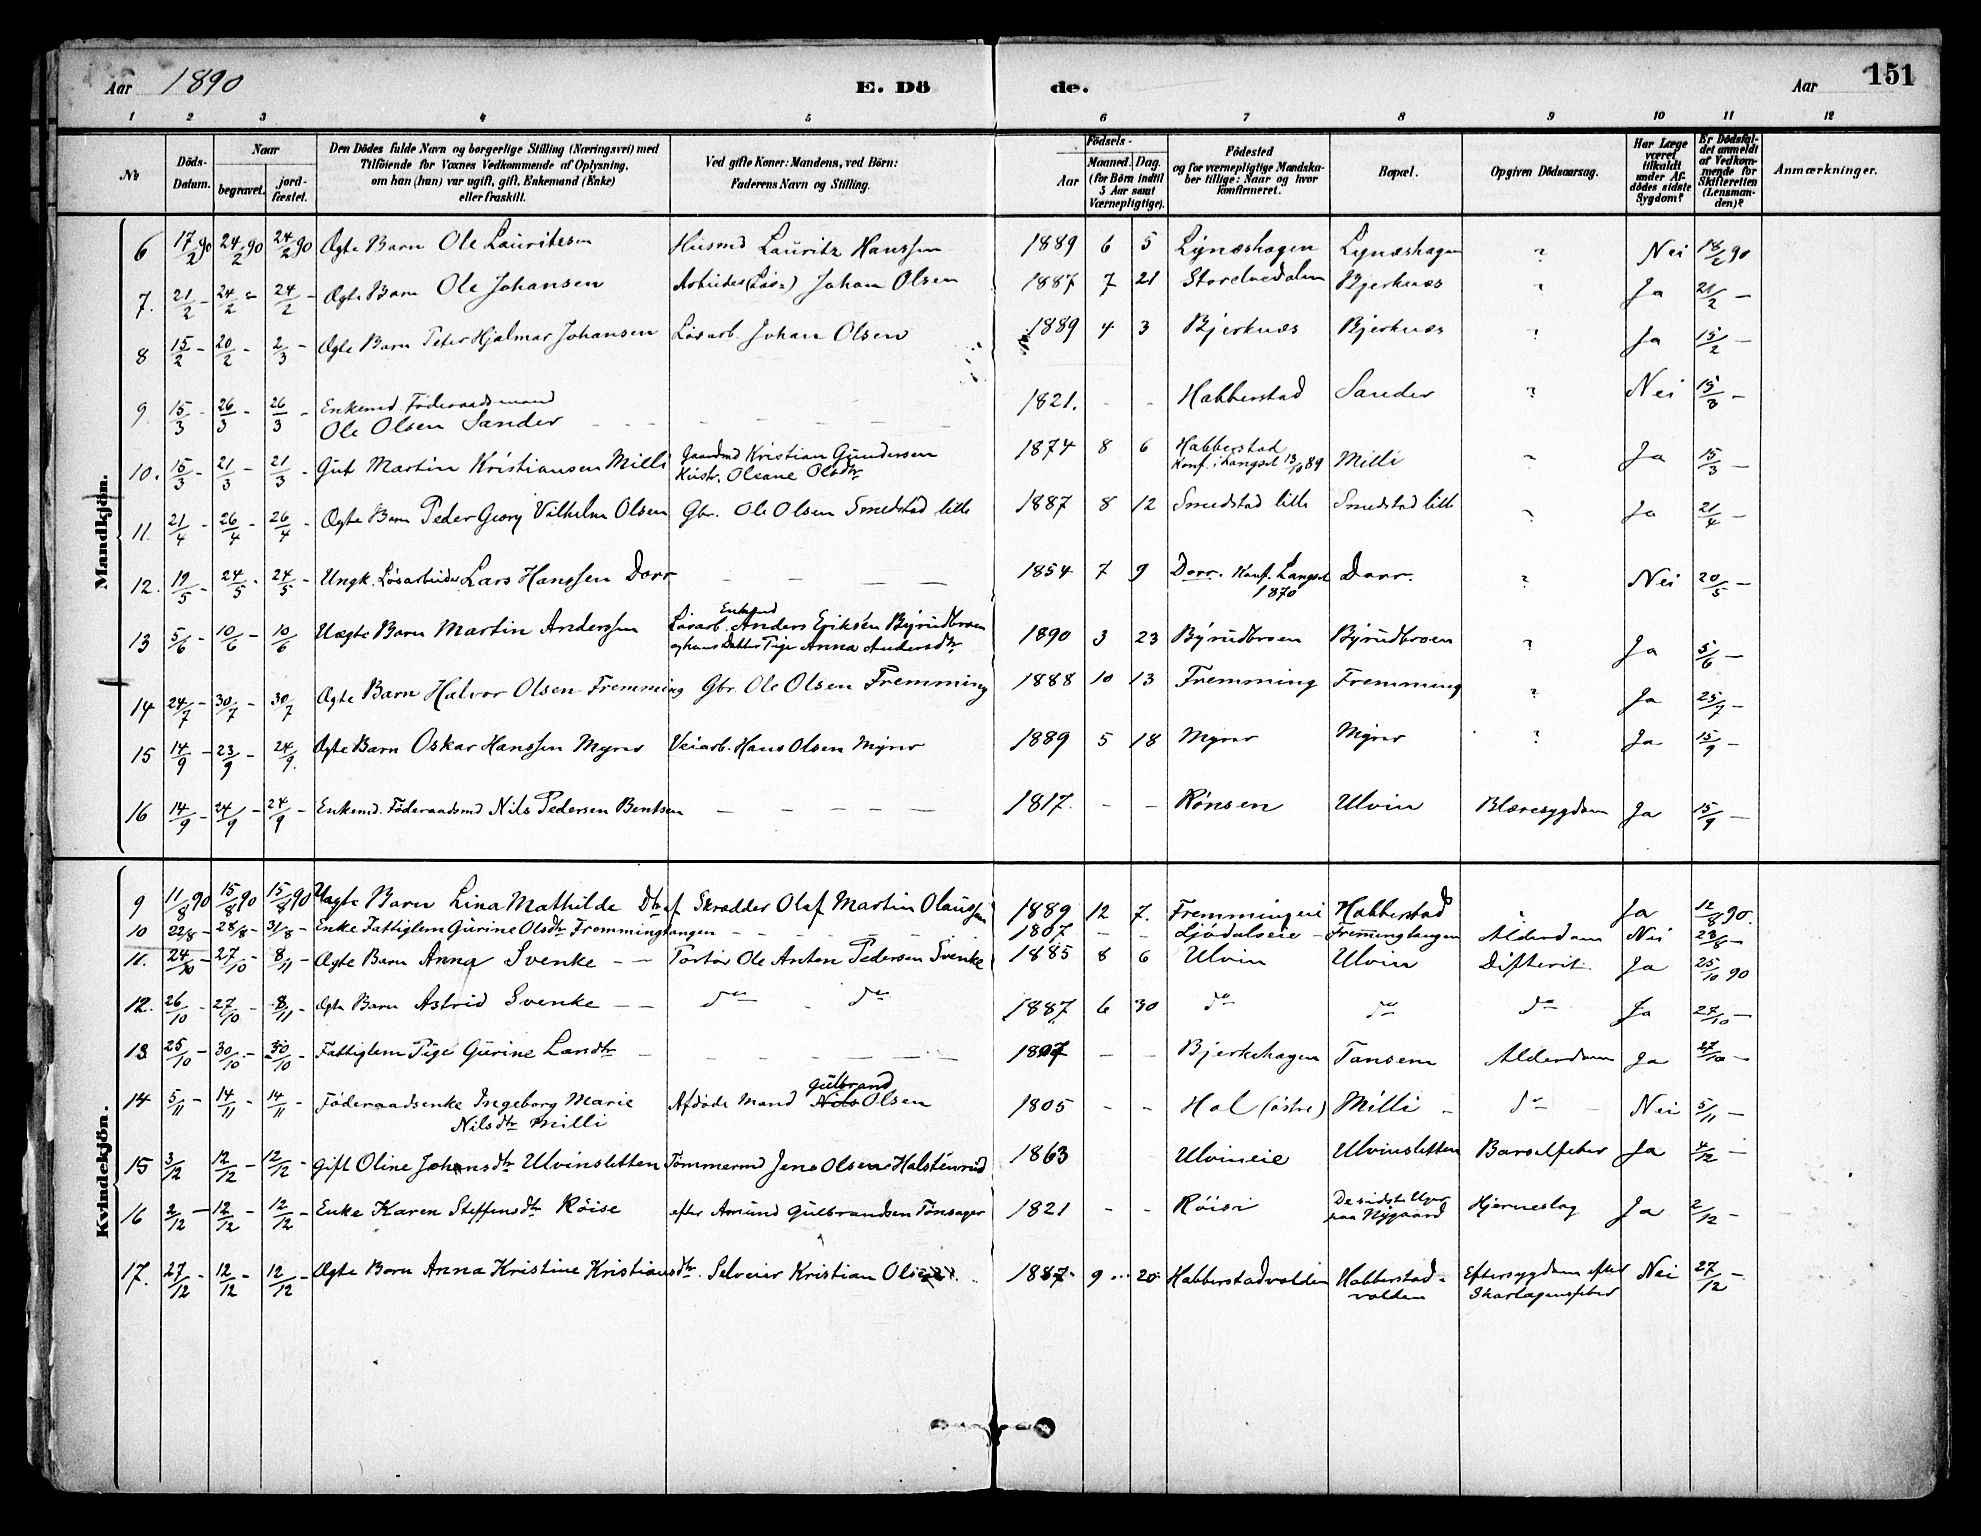 Aar 1890 E. Dö de. Aar 151
1 2 3 4 5 6 7 8 9 10 11 12
№ Döds-Datum. Naar begravet. jord-fæstet. Den Dödes fulde Navn og borgerlige Stilling (Næringsvei) med Tilföiende for Voxnes Vedkommende af Oplysning, om han (hun) var ugift, gift, Enkemand (Enke) eller fraskilt. Ved gifte Koner: Mandens, ved Börn: Faderens Navn og Stilling. Födsels- Aar Maaned. Dag. (for Börn indtil 5 Aar samt Værnepligtige). Födested og for værnepligtige Mandskaber tillige: Naar og hvor konfirmeret. Bopæl. Opgiven Dödsaarsag. Har Læge været tilkaldt under Afdödes sidste Sygdom? Er Dödsfaldet anmeldt af Vedkommende for Skifteretten (Lensmanden)? Anmærkninger.
Mandkjön.
6 17/2 90 24/2 90 24/2 90 Ægte Barn Ole Lauritzsen Husmd Lauritz Hanssen 1889 6 5 Lynæshagen Lynæshagen ? Nei 18/2 90
7. 21/2 - 24/2 - 24/2 - Ægte Barn Ole Johansen Arbeider (Løs-) Johan Olsen 1887 7 21 Storelvedalen Bjerknæs ? Ja 21/2 -
8 15/2 - 20/2 - 2/3 - Ægte Barn Peter Hjalmar Johansen Løsarb. Johan Olsen 1889 4 3 Bjerknæs Bjerknæs ? Ja 15/2 -
9. 15/3 - 26/3 - 26/3 - Enkemd Føderaadsmand Ole Olsen Sander - - - 1821. - - Habberstad Sander ? Nei 15/3 -
10. 15/3 - 21/3 - 21/3 - Gut Martin Kristiansen Milli Gaardmd Kristian Gundersen Hustr. Olsane Olsdtr 1874 8 6 Habberstad Konf. i Langset 13/10 89 Milli ? Ja 15/3 -
11. 21/4 - 26/4 - 26/4 Ægte Barn Peder Georg Vilhelm Olsen Gbr. Ole Olsen Smedstad lille 1887 8 12 Smedstad lille Smedstad lille ? Ja 21/4 -
12. 19/5 - 24/5 - 24/5 - Ungk. Løsarbeider Lars Hanssen Dorr - - - 1854 7 9 Dorr. Konf. Langset 1870 Dorr. ? Nei 20/5 -
13 5/6 - 10/6 - 10/6 Uægte Barn Martin Anderssen Løsarb. Enkemd Anders Eriksen Byrudbroen og hans Datter Pige Anna Andersdtr 1890 3 23 Byrudbroen Byrudbroen ? Ja 5/6 -
14 24/7 - 30/7 - 30/7 Ægte Barn Halvor Olsen Fremming Gbr. Ole Olsen Fremming 1888 10 13 Fremming Fremming ? Ja 25/7 -
15 14/9 - 23/9 - 24/9. Ægte Barn Oskar Hanssen Myrer Veiarb. Hans Olsen Myrer 1889 5 18 Myrer Myrer ? Ja 15/9 -
16 14/9 - 24/9 - 24/9 - Enkemd. Føderaadsmd Nils Pedersen Bentsen - - - 1817. - - Rønsen Ulvin Blæresygdom Ja 15/9 -
Kvindekjön.
9 11/8 90 15/8 90 15/8 90 Uægte Barn Lina Mathilde Dtr af Skrædder Olaf Martin Olaussen 1889 12 7. Fremmingeie Habberstad ? Ja 12/8 90.
10 22/8 - 28/8 - 31/8 - Enke Fattiglem Gurine Olsdtr Fremmingtangen - - - 1807 - - Ljødalseie - Fremmingtangen Alderdom Nei 23/8 -
11. 24/10 - 27/10 - 8/11 - Ægte Barn Anna Svenke - - Tortør Ole Anton Pedersen Svenke 1885 8 6 Ulvin Ulvin Difterit Ja 25/10 90
12. 26/10 - 27/10 - 8/11 - Ægte Barn Astrid Svenke - - do do 1887 6 30 do do do Ja 27/10 -
13 25/10 - 30/10 - 30/10 - Fattiglem Pige Gurine Larsdtr - - - 1807 - - Bjerkehagen Tansem Alderdom Ja 27/10 -
14 5/11 - 14/11 - 14/11 - Føderaadsenke Ingeborg Marie Nilsdtr Milli Afdøde Mand Gulbrand Olsen 1805 - - Hol (østre) Milli - do - Nei 5/11 -
15 3/12 12/12 - 12/12 - Gift Oline Johansdtr Ulvinsletten Tømmermd Jens Olsen Halstenrud 1863 Ulvineie Ulvinsletten Barselfeber Ja 4/12 -
16 2/12 - 12/12 - 12/12 - Enke Karen Steffensdtr Røise efter Amund Gulbrandsen Tønsager 1821 - - Røise De sidste Uger paa Nygaard Hjerneslag Ja 2/12 -
17. 27/12 - 12/12 - 12/12 - Ægte Barn Anna Kristine Kristiansdtr. Selveier Kristian Olsen 1887 9 20 Habberstadvolden Habberstad-volden Eftersygdom efter Skarlagensfeber Nei 27/12 -